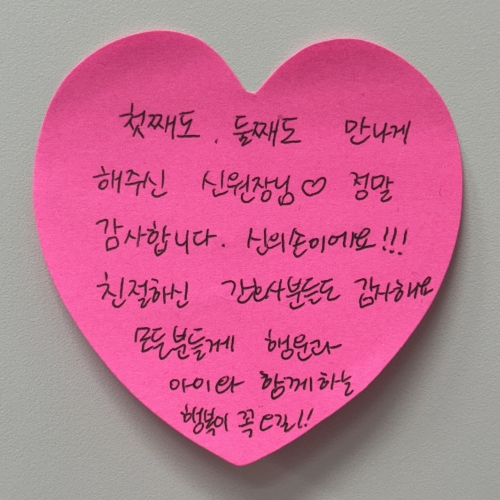 첫째도, 둘째도 만나게
해주신 신원장님♡ 정말
감사합니다. 신의손이에요!!!
친절하신 간호사분들도 감사해요
모든분들께 행운과
아이와 함께하는
행복이 꼭 오길!!